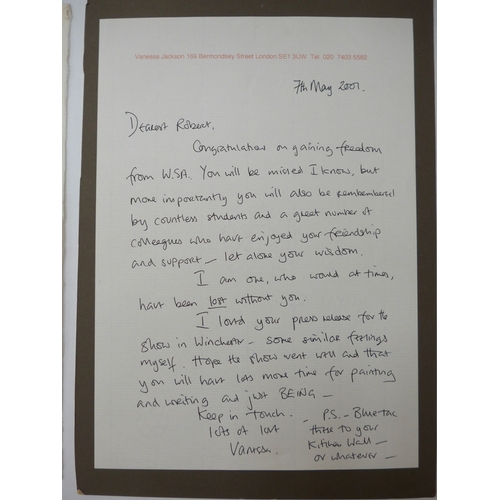 Vanessa Jackson 169 Bermondsey Street London SE1 3UW Tel: 020 7403 5582
7th May 2001.
Dearest Robert,
Congratulations on gaining freedom
from W.S.A. You will be missed I know, but
more importantly you will also be remembered
by countless students and a great number of
colleagues who have enjoyed your friendship
and support – let alone your wisdom.
I am one, who would at times,
have been lost without you.
I loved your press release for the
show in Winchester – some similar feelings
myself. Hope the show went well and that
you will have lots more time for painting
and writing and just BEING –
Keep in touch.
lots of love
Vanessa.
P.S. – Bluetac
these to your
Kitchen Wall –
or whatever –